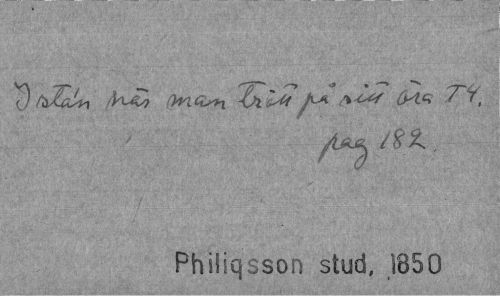 I stán när man trött på sitt öra T4.
pag 182.
Philiqsson stud, 1850